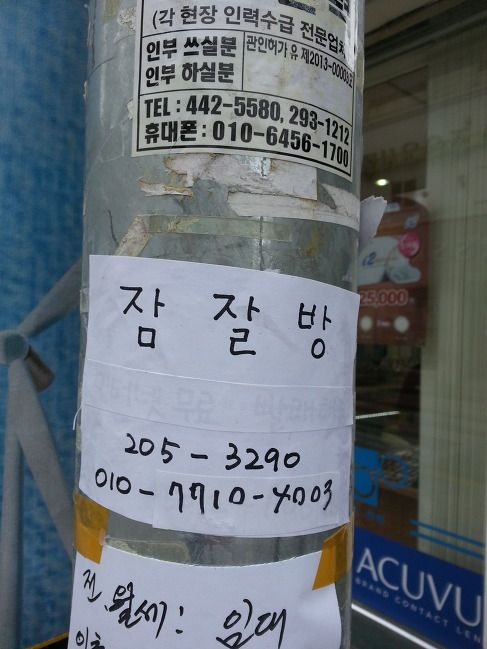 (각 현장 인력수급 전문업체
인부 쓰실분
인부 하실분
관인허가 유 제2013-00006호
TEL : 442-5580, 293-1212
휴대폰 : 010-6456-1700
잠 잘 방
205-3290
010-7710-4003
전.월세: 임대
25,000
ACUVU
BRAND CONTACT LEN